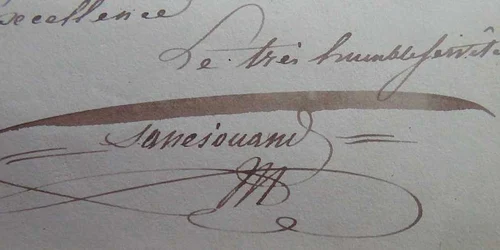 excellence
Le très humble servite
Sanejouand